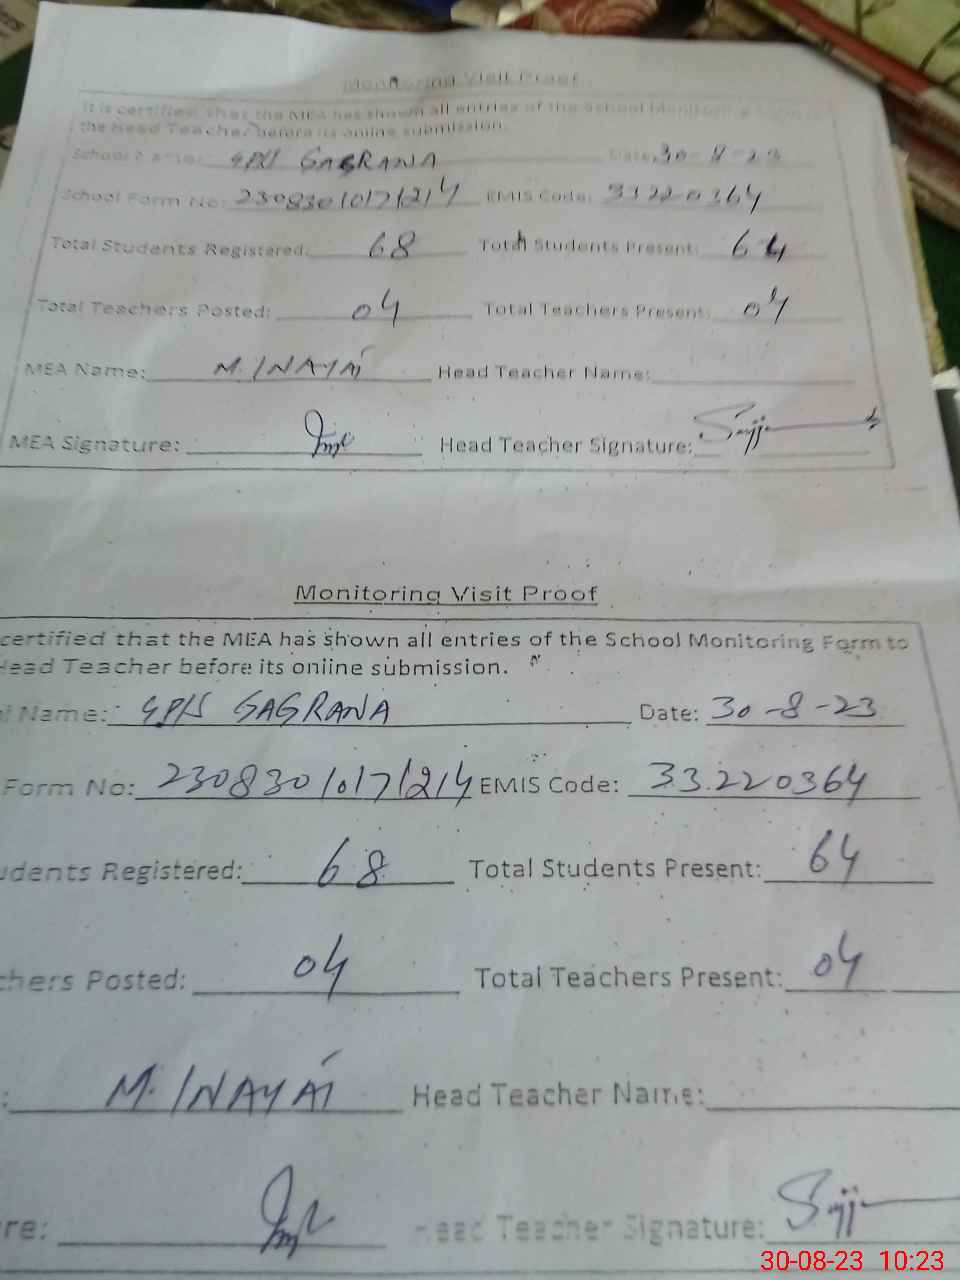 Monitoring Visit Proof
It is certified that the MEA has shown all entries of the School Monitoring Form to
the Head Teacher before its online submission.
School Name: GPS GAGRANA Date: 30-8-23
School Form No: 23083010171214 EMIS Code: 33220364
Total Students Registered: 68 Total Students Present: 64
Total Teachers Posted: 04 Total Teachers Present: 04
MEA Name: M. INAYAT Head Teacher Name:
MEA Signature: Head Teacher Signature:
Monitoring Visit Proof
certified that the MEA has shown all entries of the School Monitoring Form to
Head Teacher before its online submission.
Name: GPS GAGRANA Date: 30-8-23
Form No: 23083010171214 EMIS Code: 33220364
udents Registered: 68 Total Students Present: 64
chers Posted: 04 Total Teachers Present: 04
: M. INAYAT Head Teacher Name:
re: Head Teacher Signature:
30-08-23 10:23